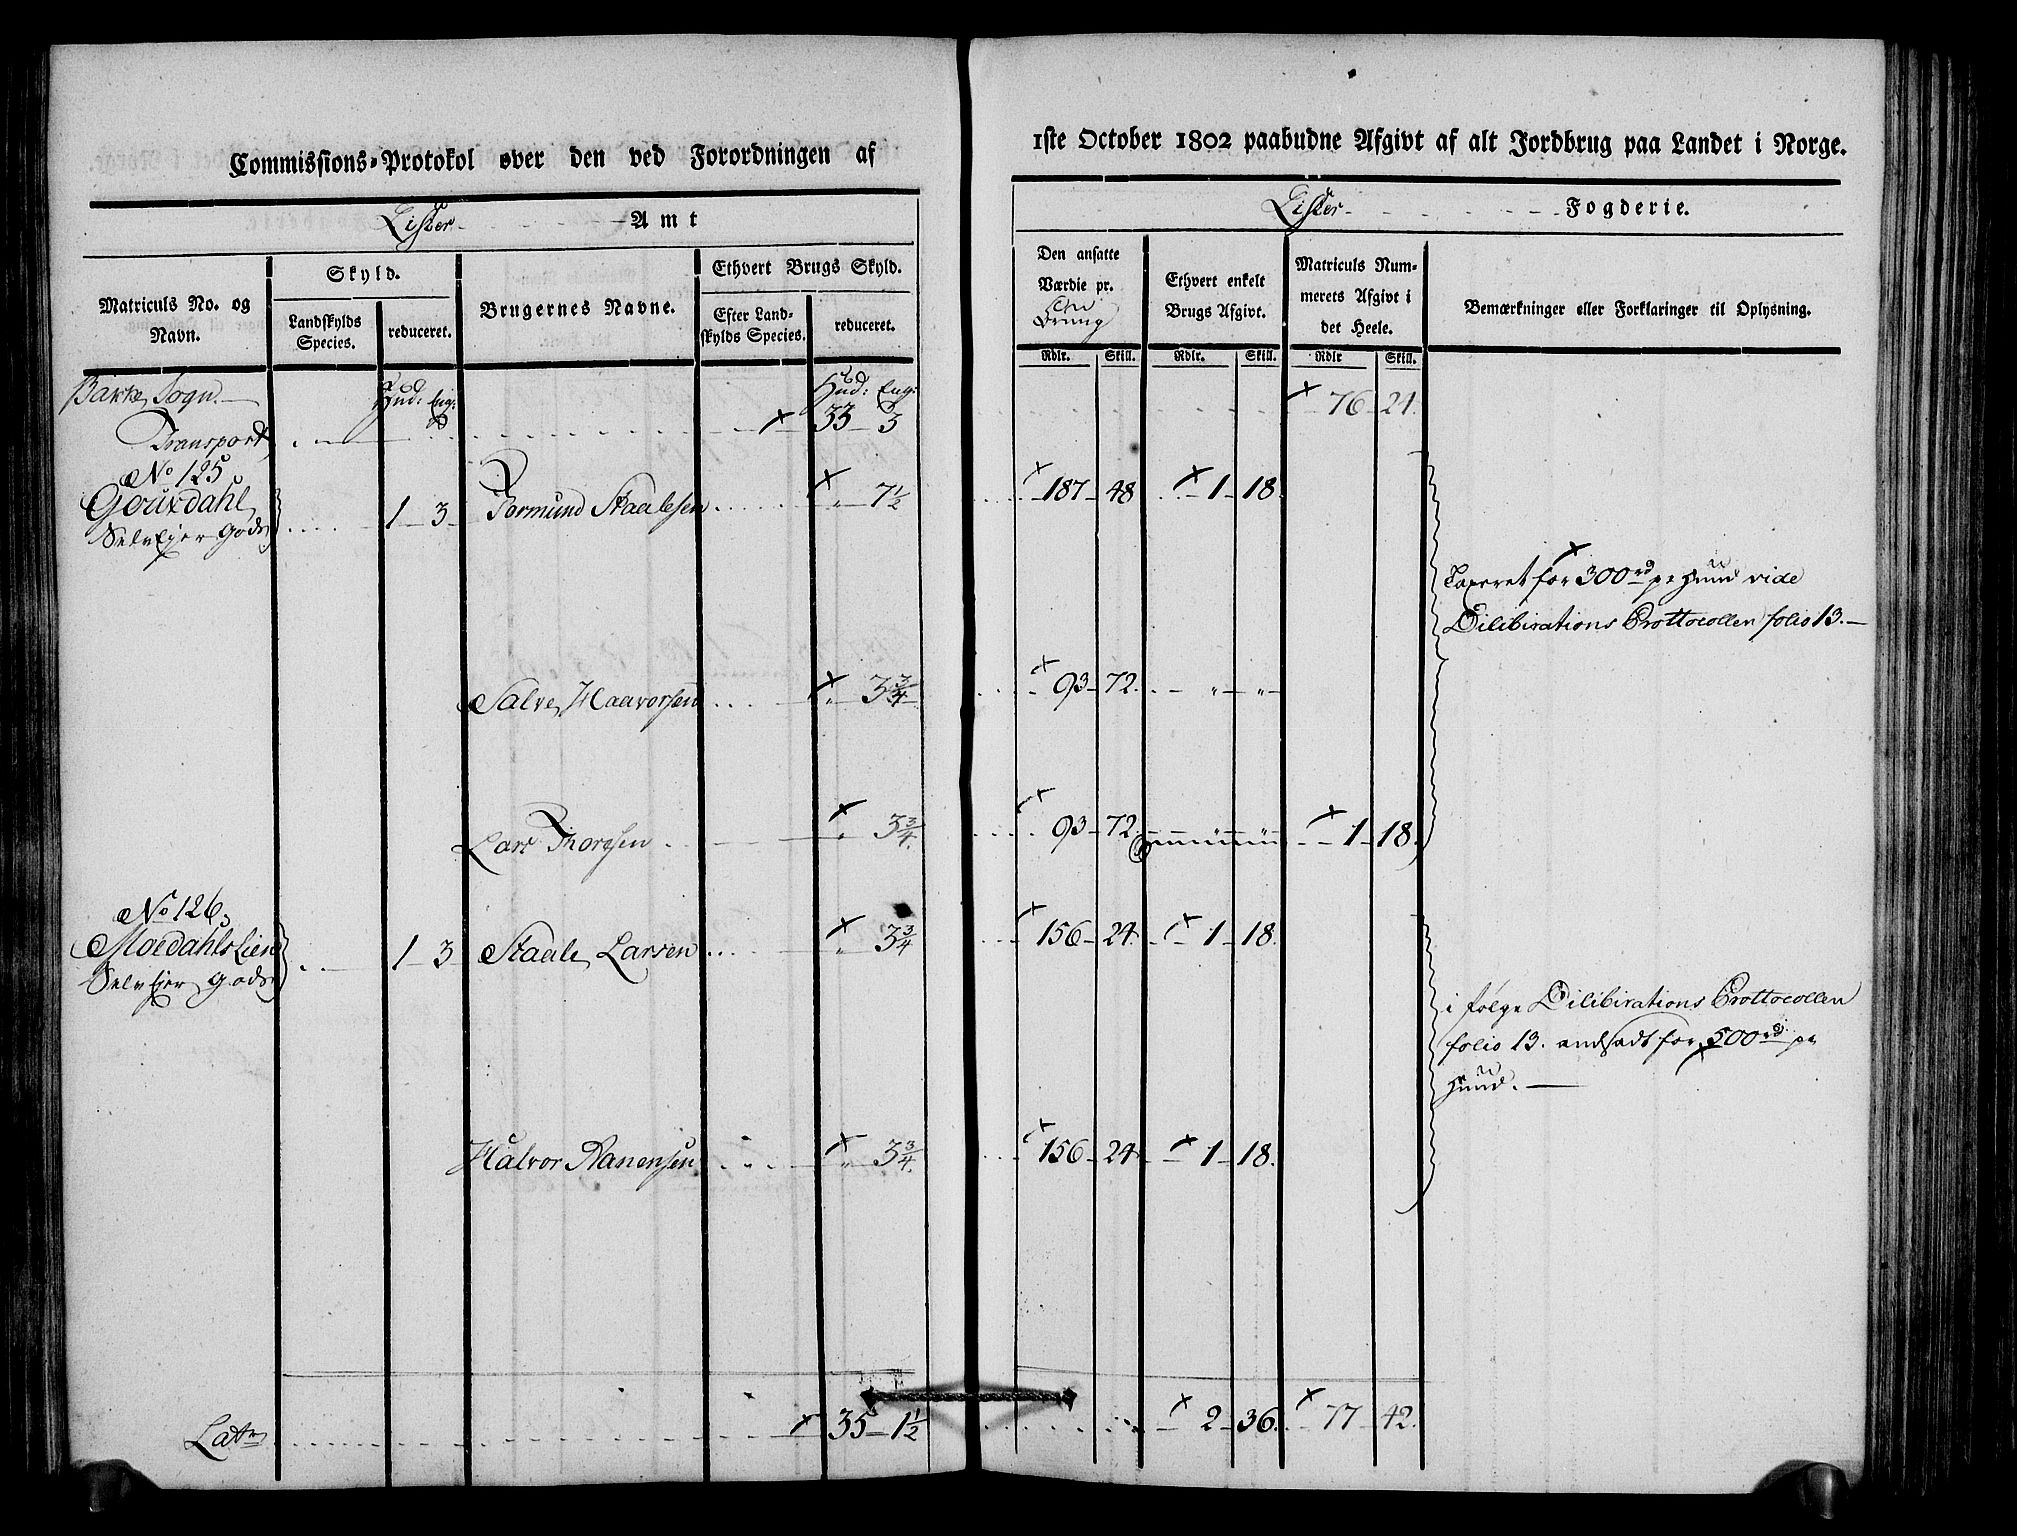 Commissions-Protokol over den ved Forordningen af
Lister Amt
Matriculs No. og Navn.
Skyld.
Landskylds Species.
reduceret.
Brugernes Navne.
Ethvert Brugs Skyld.
Efter Landskylds Species.
reduceret.
Bakke Sogn. Hud: Eng: Hud: Eng:
Transport 33 3
No 125
Gouxdahl 1 3 Tormund Staalesen " 7 1/2
Selvejer Gods
Salve Haavorsen " 3 3/4
Lars Thorgsen " 3 3/4
No 126
Moedahls Lien 1 3 Staale Larsen " 3 3/4
Selvejer Gods
Halvor Ranensen " 3 3/4
Lats 35 1 1/2
1ste October 1802 paabudne Afgivt af alt Jordbrug paa Landet i Norge.
Lister Fogderie.
Den ansatte Værdie pr.
Ethvert enkelt Brugs Afgivt.
Matriculs Nummerets Afgivt i det Heele.
Bemærkninger eller Forklaringer til Oplysning.
Rdlr. Skill. Rdlr. Skill. Rdlr Skill.
76 21
187 48 1 18
Taxeret for 300rd pr Huud vide
Dilibirations Prottocollen folio 13.
93 72 " "
93 72 1 18
156 24 1 18
i følge Dilibirations Prottocollen
folio 13. andsadt for 500rd pr
Huud.
156 24 1 18
2 36 77 42